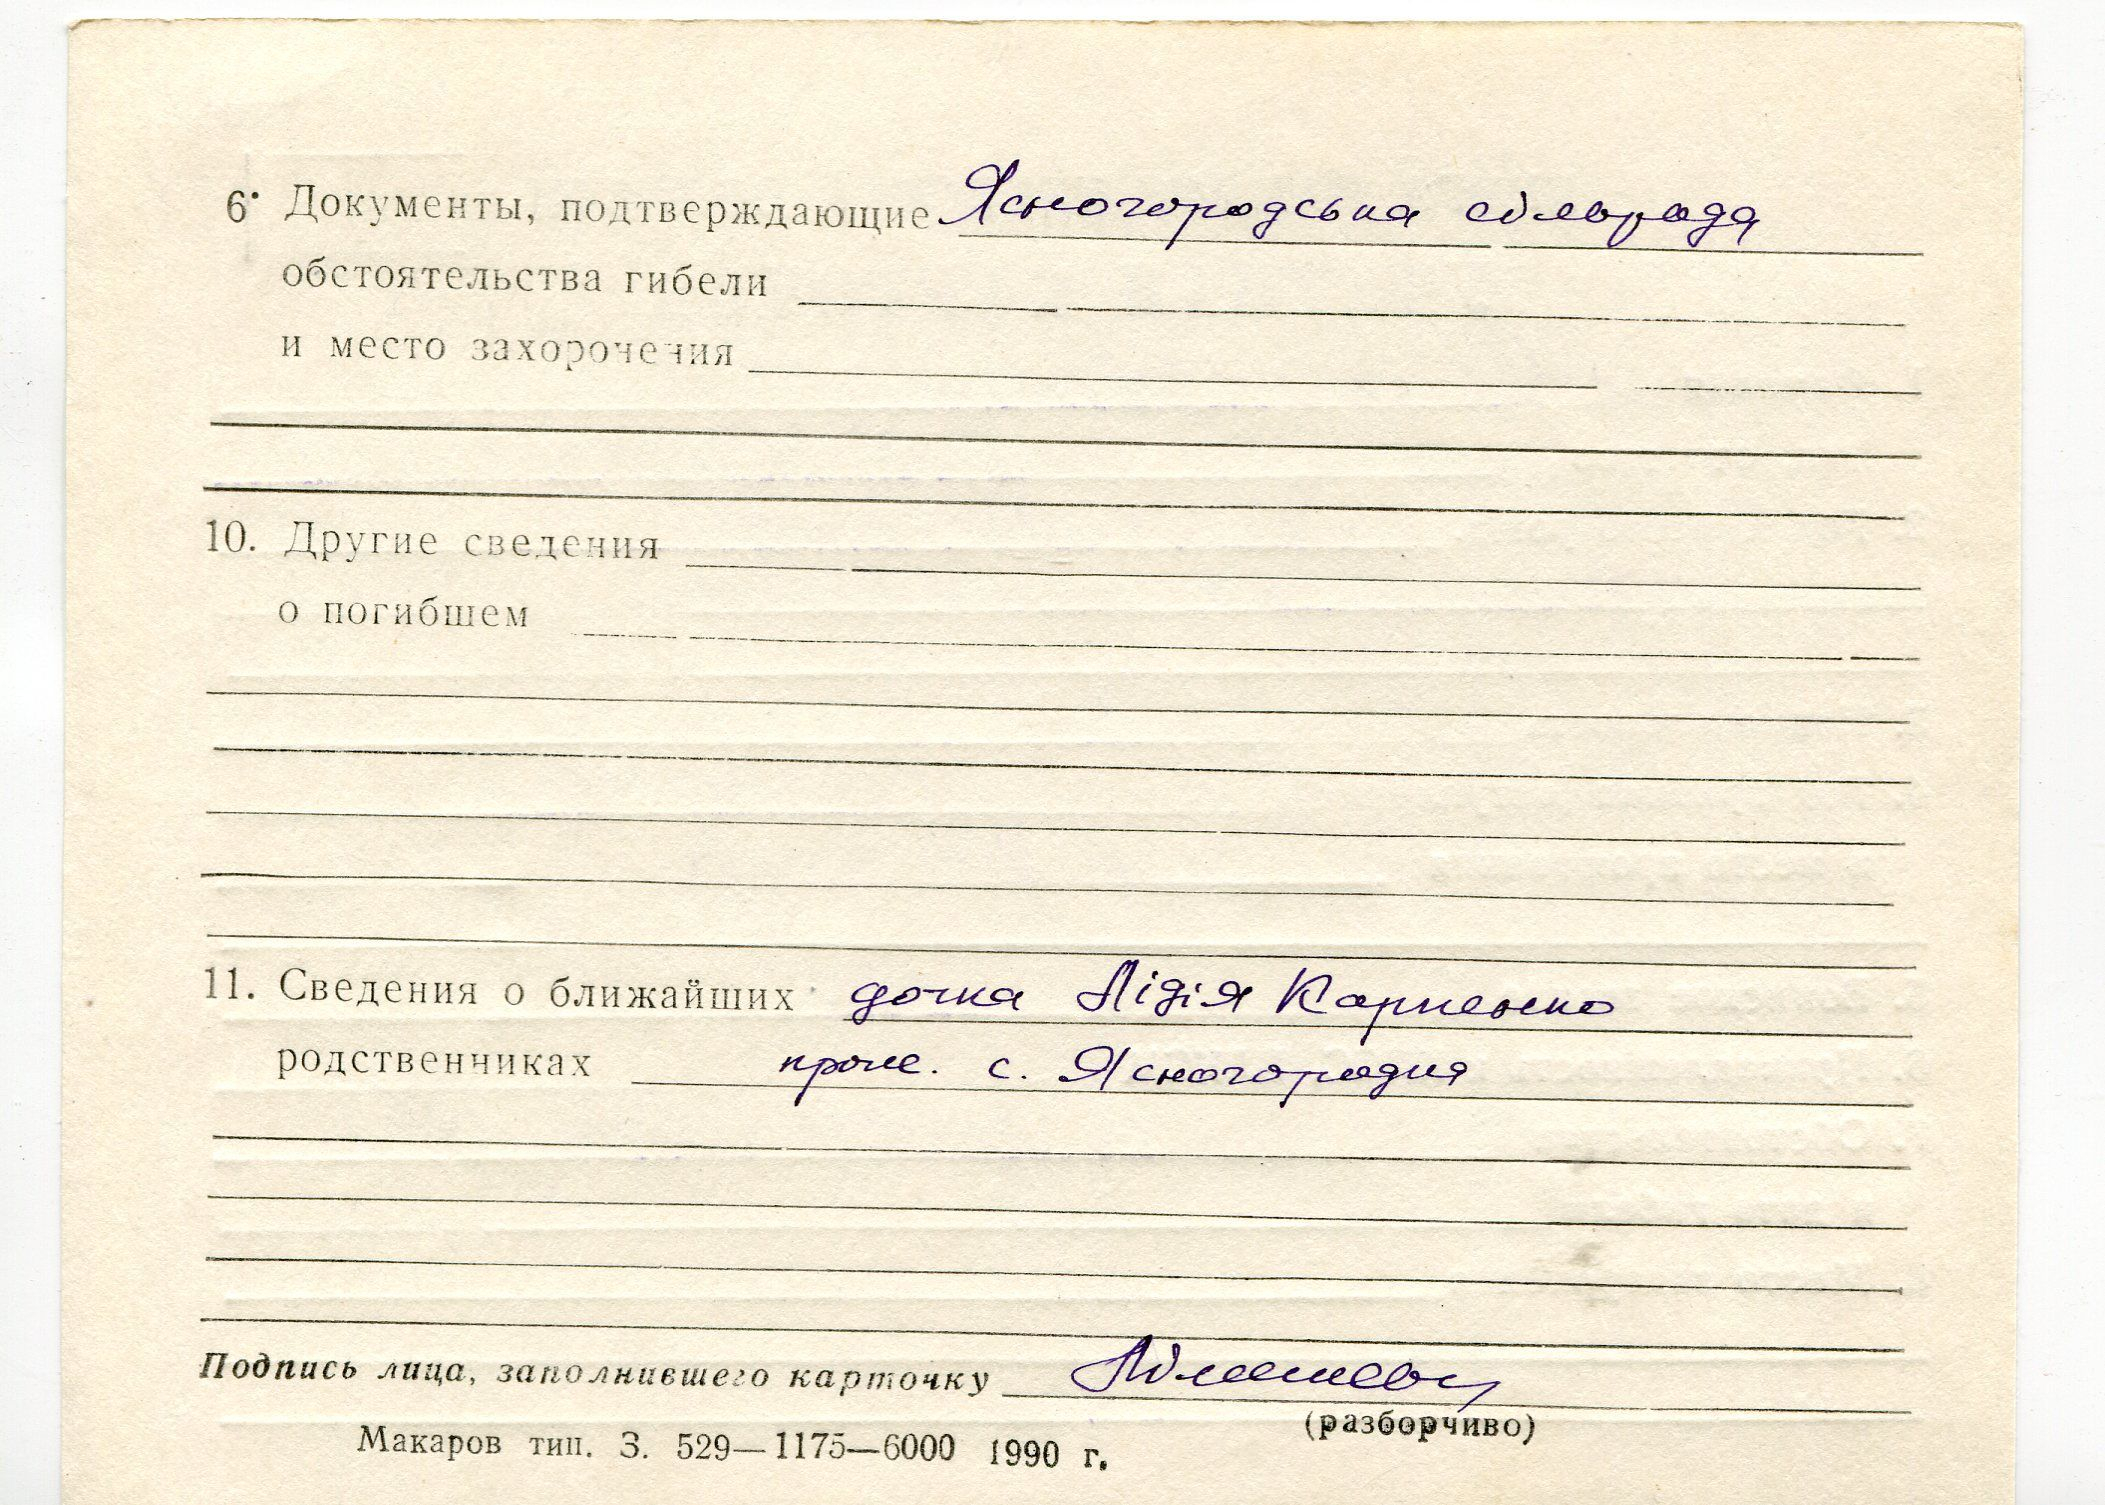 6. Документы, подтверждающие Ясногородська сільрада
обстоятельства гибели
и место захоронения
10. Другие сведения
о погибшем
11. Сведения о ближайших дочка Лідія Карпенко
родственниках прож. с. Ясногородка
Подпись лица, заполнившего карточку
(разборчиво)
Макаров тип. З. 529—1175—6000 1990 г.